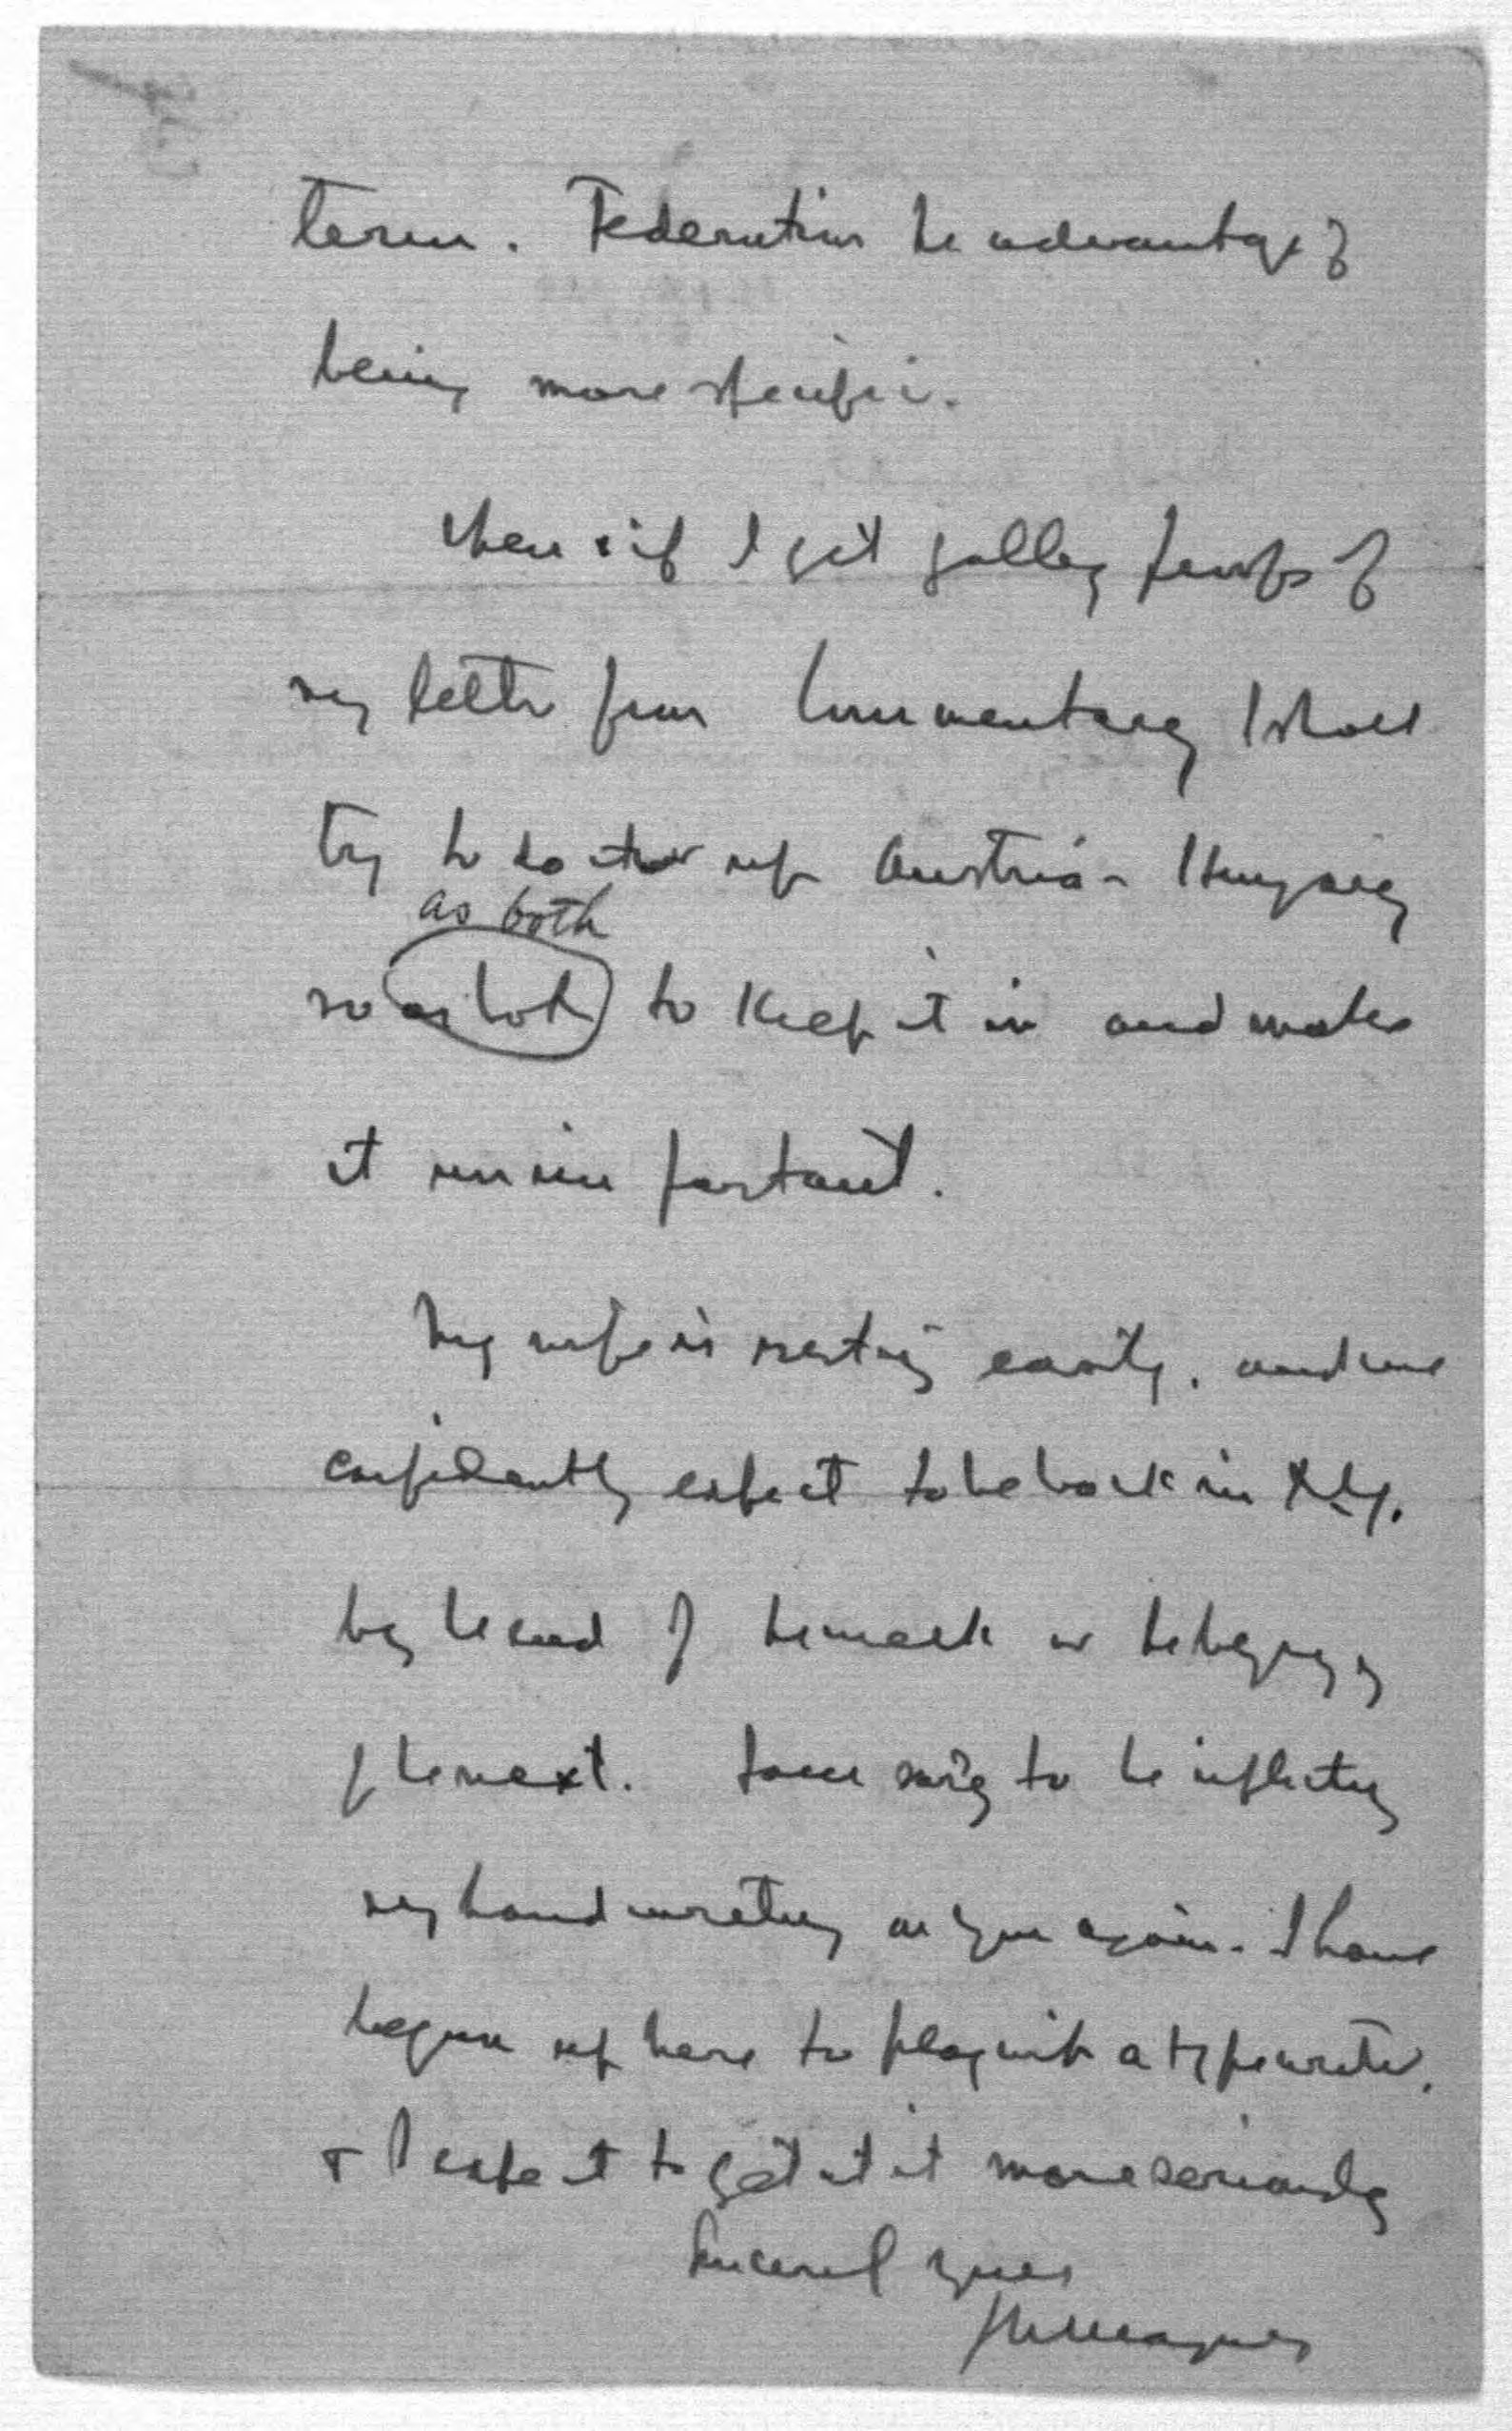 term. Federation the advantage of
being more specific.
When & if I get galley proofs of
my letter from Commentary I shall
try to doctor up Austria-Hungary
as both
so as both to keep it in and make
it unimportant.
My wife is resting easily, and we
confidently expect to be back in N.Y.
by the end of the week or the beginning
of the next. to be inflicting
my handwriting on you again. I have
begun up here to play with a typewriter,
& I expect to get at it more seriously
Sincerely yours